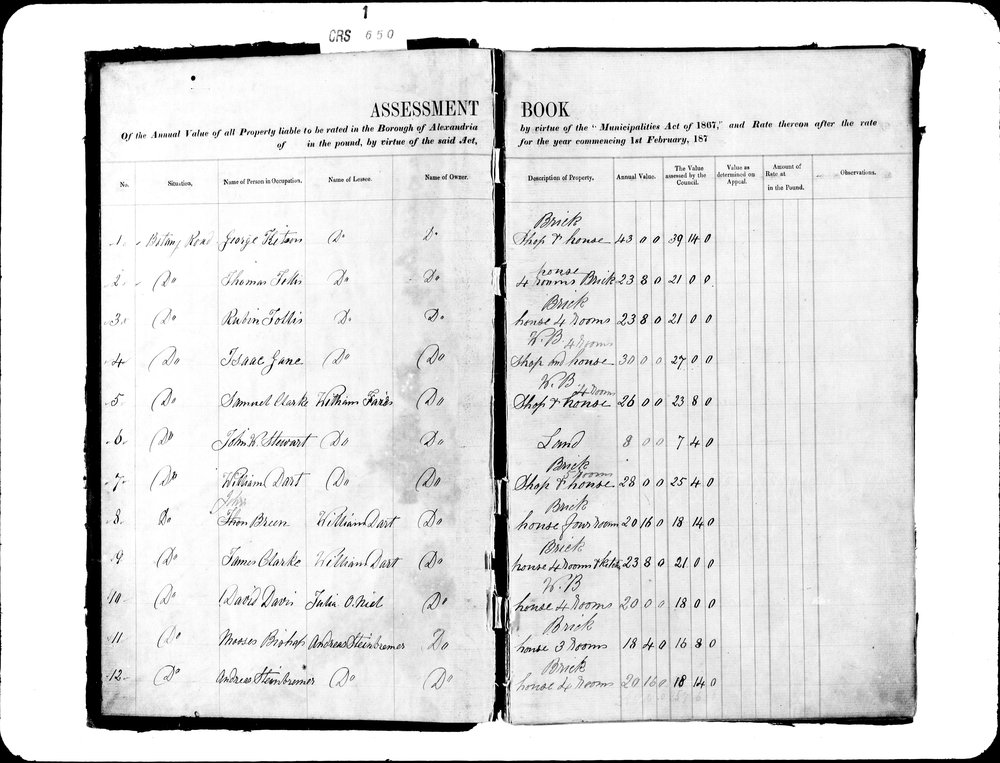 1
CRS 650
ASSESSMENT BOOK
Of the Annual Value of all Property liable to be rated in the Borough of Alexandria by virtue of the "Municipalities Act of 1867," and Rate thereon after the rate
of in the pound, by virtue of the said Act, for the year commencing 1st February, 187
No. Situation. Name of Person in Occupation. Name of Lessee. Name of Owner. Description of Property. Annual Value. The Value assessed by the Council. Value as determined on Appeal. Amount of Rate at in the Pound. Observations.
Brick
1 Botany Road George Do Do Shop & house 43 0 0 39 14 0
house
2 Do Thomas Do Do 4 rooms Brick 23 8 0 21 0 0
Brick
3 Do Rubin Follis Do Do house 4 Rooms 23 8 0 21 0 0
W.B 4 Rooms
4 Do Isaac Gane Do Do Shop and house 30 0 0 27 0 0
W.B 4 Rooms
5 Do Samuel Clarke William Do Shop & house 26 0 0 23 8 0
6 Do John W. Stewart Do Do Land 8 0 0 7 4 0
Brick
Rooms
7 Do William Dart Do Do Shop & house 28 0 0 25 4 0
John Brick
8 Do Breen William Dart Do house four Room 20 16 0 18 14 0
Brick
9 Do James Clarke William Dart Do house 4 Rooms & kitch 23 8 0 21 0 0
W.B
10 Do David Davis Julia O.Niel Do house 4 Rooms 20 0 0 18 0 0
Brick
11 Do Mosses Bishop Andreas Steinbremer Do house 3 Rooms 18 4 0 16 8 0
Brick
12 Do Andreas Steinbremer Do Do house 4 Rooms 20 16 0 18 14 0